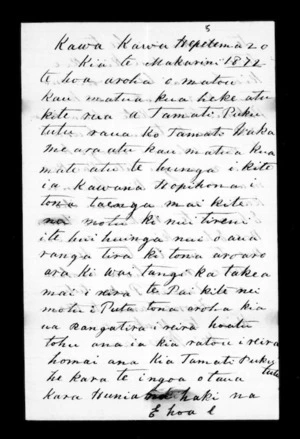 3
Kawa Kawa Hepetema 20
Kia te Makarini 1872
te hoa aroha o matou
kau matua kua heke atu
kite rua a Tamati Puku
tutu raua ko Tamati Waka
me ara atu kau matua kua
mate atu te hunga i kite
ia Kawana Hopihona i
tona mai kite
na motu ki nui tireni
ite huihuinga nui o aua
ranga tira ki tona aroaro
ara ki Wai tangi ka takea
mai i reira te Pai kite nei
motu i Puta tona aroha kia
ua Rangatira i reira hoatu
tohu ana ia kia ratou i reira
homai ana Kia Tamati Puku
tutu
he kara te ingoa o taua
kara Hunia haki na
E hoa e